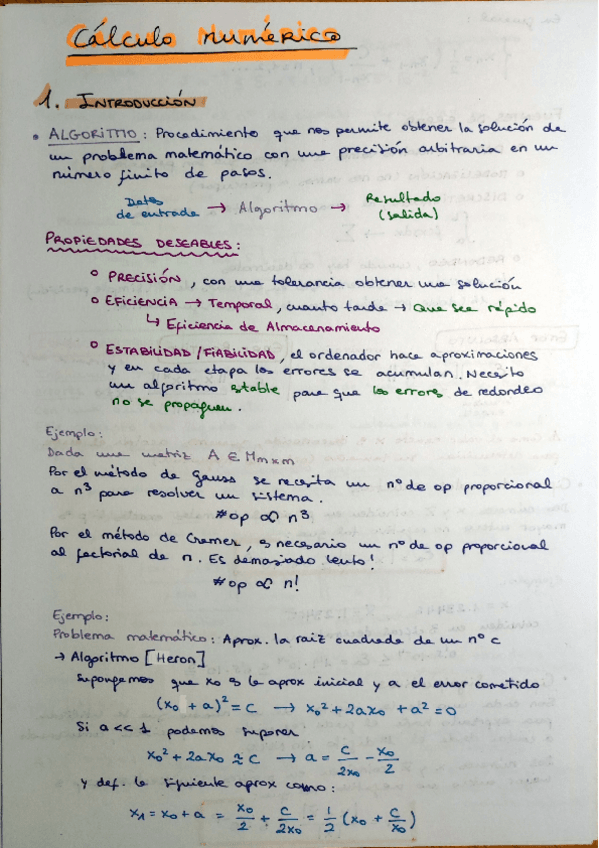 Cálculo Numérico
1. INTRODUCCIÓN
• ALGORITMO: Procedimiento que nos permite obtener la solución de
un problema matemático con una precisión arbitraria en un
número finito de pasos.
Datos de entrada → Algoritmo → Resultado (salida)
PROPIEDADES DESEABLES:
o PRECISIÓN, con una tolerancia obtener una solución
o EFICIENCIA → Temporal, cuanto tarda → Que sea rápido
↳ Eficiencia de Almacenamiento
o ESTABILIDAD/FIABILIDAD, el ordenador hace aproximaciones
y en cada etapa los errores se acumulan. Necesito
un algoritmo estable para que los errores de redondeo
no se propaguen.
Ejemplo:
Dada una matriz A ∈ Mmxm
Por el método de Gauss se necesita un nº de op proporcional
a n³ para resolver un sistema.
#op ∝ n³
Por el método de Cramer, es necesario un nº de op proporcional
al factorial de n. Es demasiado lento!
#op ∝ n!
Ejemplo:
Problema matemático: Aprox. la raiz cuadrada de un nº c
→ Algoritmo [Heron]
Supongamos que x₀ es la aprox inicial y a el error cometido
(x₀ + a)² = C → x₀² + 2ax₀ + a² = 0
Si a << 1 podemos suponer
x₀² + 2ax₀ ≈ C → a = C/2x₀ - x₀/2
y def. la siguiente aprox como:
x₁ = x₀ + a = x₀/2 + C/2x₀ = 1/2 (x₀ + C/x₀)